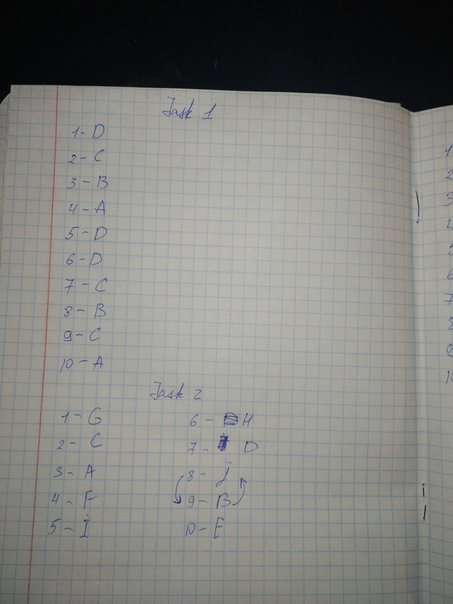 Task 1
1 - D
2 - C
3 - B
4 - A
5 - D
6 - D
7 - C
8 - B
9 - C
10 - A
Task 2
1 - G
2 - C
3 - A
4 - F
5 - I
6 - H
7 - D
8 - j
9 - B
10 - E
1
2
3
4
5
6
7
8
9
10